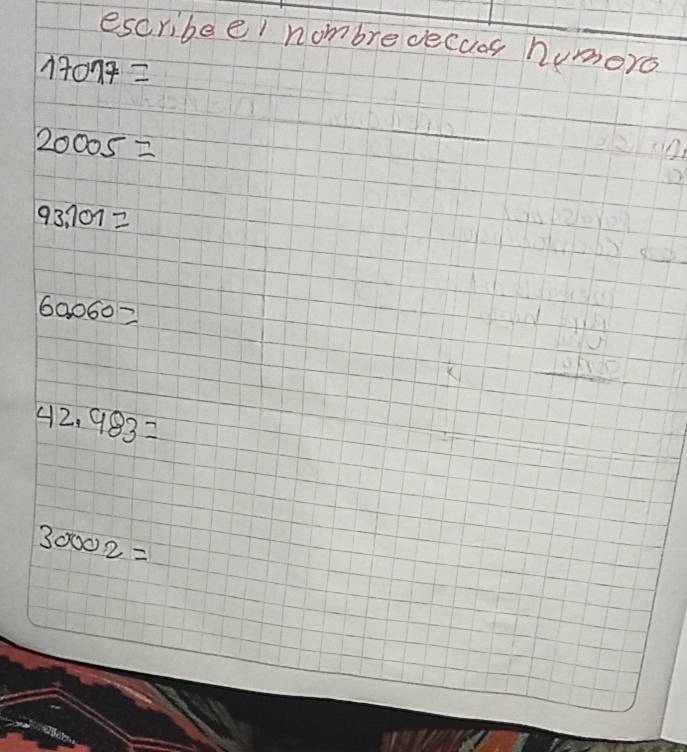 escribe el nombre decada numero
17017=
20005=
93,101=
60,060=
42,983=
30002=